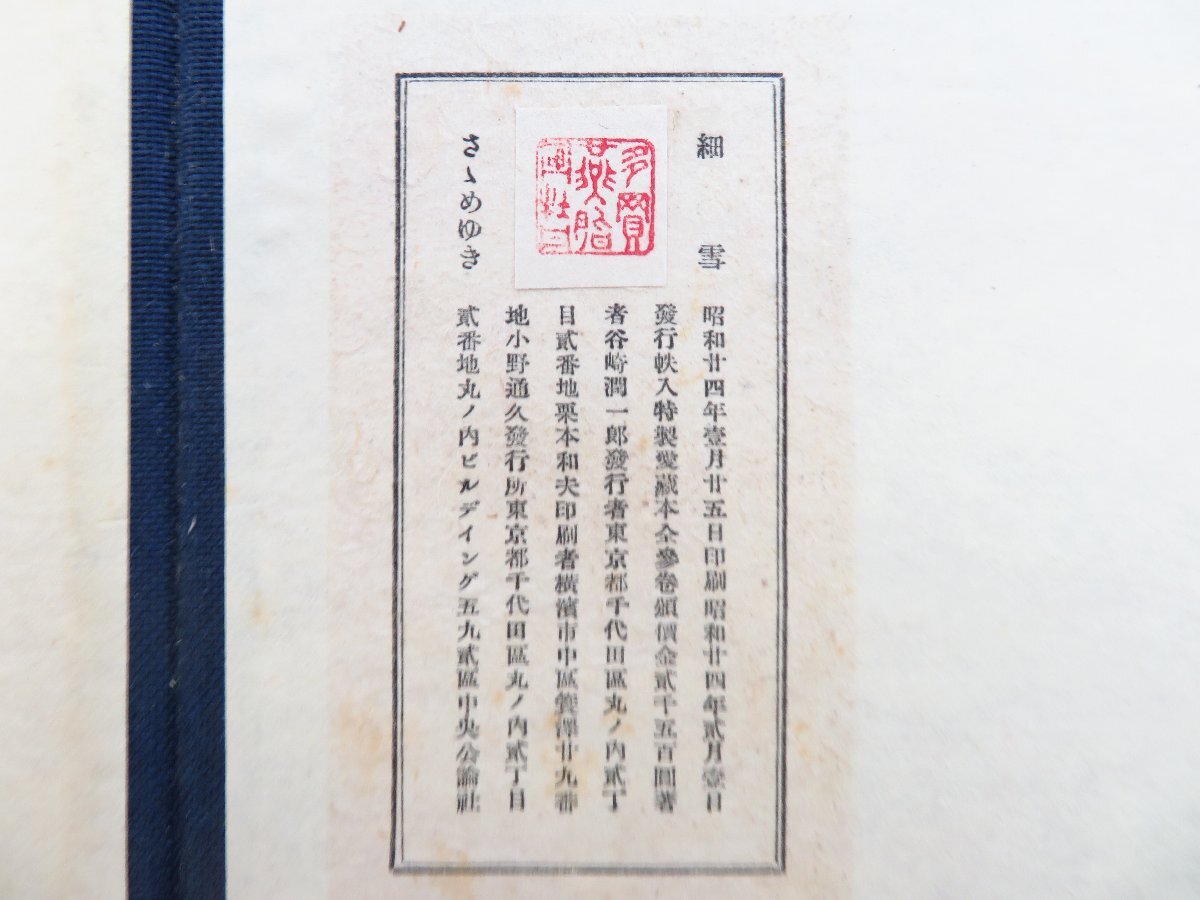 細雪
昭和廿四年壹月廿五日印刷昭和廿四年貳月壹日
發行帙入特製愛藏本全參卷頒價金貳千五百圓著
者谷崎潤一郎發行者東京都千代田區丸ノ內貳丁
目貳番地栗本和夫印刷者橫濱市中區簑澤廿九番
地小野通久發行所東京都千代田區丸ノ內貳丁目
貳番地丸ノ內ビルデイング五九貳區中央公論社
さゝめゆき